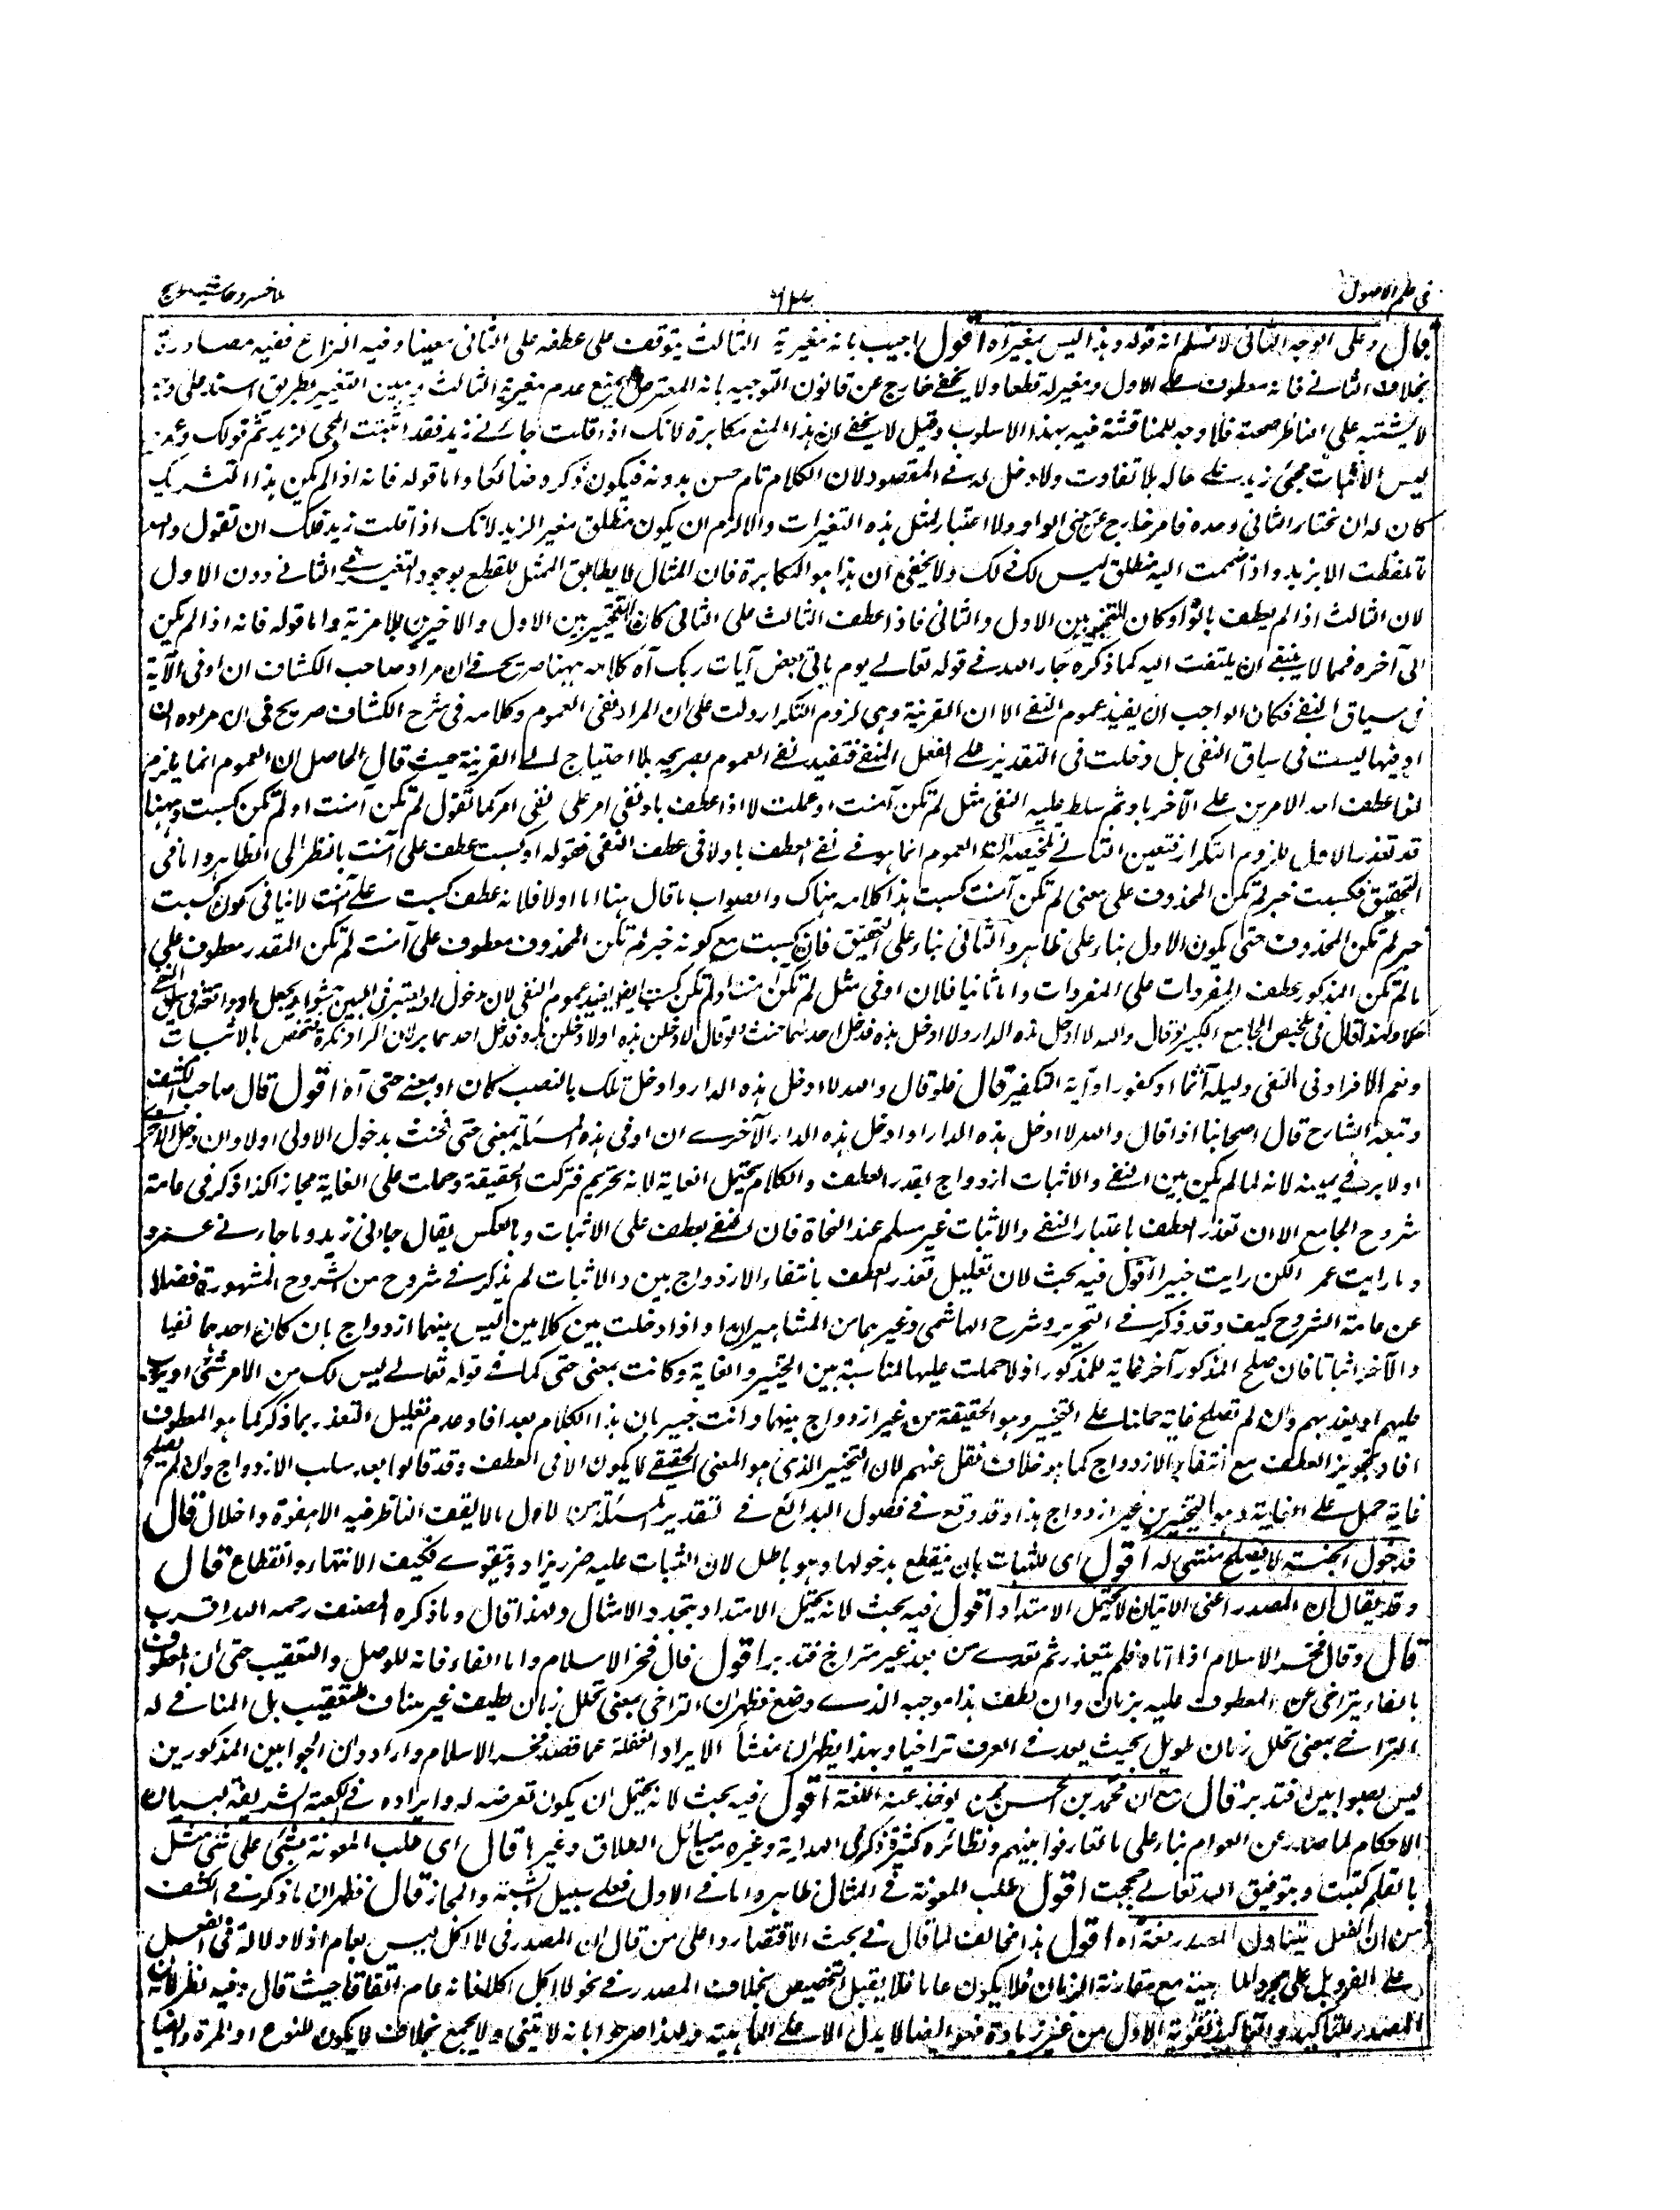 في علم الاصول
ملا خسرو حاشيه تلويح
قال وعلى الوجه الثاني لا نسلم انه قوله وهذا ليس بمغير اه اقول اجيب بانه مغيرية الثالث يتوقف على عطفه على الثاني معينا وفيه النزاع ففيه مصادرة
بخلاف الثاني فانه معطوف على الاول ومغير له قطعا ولا يخفى خارج عن قانون التوجيه بانه المعترض يمنع عدم مغيرية الثالث ويبين التغيير بطريق
لا يشتبه على المناظر صحته فلا وجه للمناقشة فيه بهذا الاسلوب وقيل لا يخفى ان هذا المنع مكابرة لانك اذا قلت جاءني زيد فقد اثبتت المجئ لزيد ثم قولك وعمرو
ليس الا اثبات مجئ زيد على حاله بلا تفاوت ولا دخل له في المقصود لان الكلام تام حسن بدونه فيكون ذكره ضائعا واما قوله فانه اذا لم يكن هذا التشريك
كان له ان يختار الثاني وحده فامر خارج عن معنى الواو ولا اعتبار لمثل هذه التغيرات والا لزم ان يكون منطلق مغير الزيد لانك اذا قلت زيد فلك ان تقول
ما تلفظت الا بزيد واذا ضممت اليه منطلق ليس لك ذلك ولا يخفى ان هذا هو المكابرة فان المثال لا يطابق الممثل للقطع بوجود التغيير في الثاني دون الاول
لان الثالث اذا لم يعطف بالواو كان التخيير بين الاول والثاني فاذا عطف الثالث على الثاني كان التخيير بين الاول والاخيرين بلا مزية واما قوله فانه اذا لم يكن
الى آخره فمما لا ينبغي ان يلتفت اليه كما ذكره جار الله في قوله تعالى يوم ياتي بعض آيات ربك آه كلامه ههنا صريح في ان مراد صاحب الكشاف ان او في الآية
في سياق النفي فكان الواجب ان يفيد عموم النفي الا ان القرينة وهي لزوم التكرار دلت على ان المراد نفي العموم وكلامه في شرح الكشاف صريح في ان مراده ان
او فيها ليست في سياق النفي بل دخلت في التقدير على الفعل المنفي فتفيد نفي العموم بصريحه بلا احتياج الى القرينة حيث قال الحاصل ان العموم انما يلزم
لو عطف احد الامرين على الآخر باو ثم سلط عليه النفي مثل لم تكن آمنت او عملت لا اذا عطف باو نفي امر على نفي امر كما تقول لم تكن آمنت او لم تكن كسبت وههنا
قد تعذر الاول للزوم التكرار فتعين الثاني العموم انما هو في نفي العطف باو لا في عطف النفي فقوله او كسبت عطف على آمنت بالنظر الى الظاهر واما في
التحقيق فكسبت خبر لم تكن المحذوف على معنى لم تكن آمنت كسبت هذا كلامه هناك والصواب ما قال هنا اما اولا فلانه عطف كسبت على آمنت لا ينافي كون كسبت
خبر لم تكن المحذوف حتى يكون الاول بناء على ظاهر والثاني بناء على التحقيق فان كسبت مع كونه خبر لم تكن المحذوف معطوف على آمنت لم تكن المقدر معطوف على
لم تكن المذكور بعطف المفردات على المفردات واما ثانيا فلان او في مثل لم تكن آمنت او لم تكن كسبت ايضا يفيد عموم النفي لان دخول
ولهذا قال في تلخيص الجامع الكبير لو قال والله لا ادخل هذه الدار ولا ادخل هذه فدخل احدهما حنث ولو قال لادخلن هذه او لادخلن هذه فدخل احدهما بر لان المراد نكرة فتخص بالاثبات
وتعم الافراد في النفي دليله آثما او كفورا وآية التكفير قال فلو قال والله لا ادخل هذه الدار او ادخل تلك بالنصب كان او بمعنى حتى آه اقول قال صاحب الكشف
وتبعه الشارح قال اصحابنا اذا قال والله لا ادخل هذه الدار او ادخل هذه الدار الآخرى ان او في هذه المسئلة بمعنى حتى فحنث بدخول الاولى اولا وان دخل الاخرى
اولا بر في يمينه لانه لما لم يكن بين النفي والاثبات ازدواج تعذر العطف والكلام يحتمل الغاية لانه تحريم فتركت الحقيقة وحملت على الغاية مجازا كذا ذكر في عامة
شروح الجامع الا ان تعذر العطف باعتبار النفي والاثبات غير مسلم عند النحاة فان النفي يعطف على الاثبات وبالعكس يقال جاءني زيد وما جاءني عمرو
وما رايت عمر لكن رايت خبيرا اقول فيه بحث لان تعليل تعذر العطف بانتفاء الازدواج بين والاثبات لم يذكر في شروح من الشروح المشهورة فضلا
عن عامة الشروح كيف وقد ذكر في التحرير وشرح الهاشمي وغيرهما من المشاهير ان او اذا دخلت بين كلامين ليس بينهما ازدواج بان كان احدهما نفيا
والآخر اثباتا فان صلح المذكور آخرا غاية للمذكور اولا حملت عليها لمناسبة بين التخيير والغاية وكانت بمعنى حتى كما في قوله تعالى ليس لك من الامر شئ او يتوب
عليهم او يعذبهم وان لم تصلح غاية حملناه على التخيير وهو الحقيقة من غير ازدواج بينهما وانت خبير بان هذا الكلام بعد افاد عدم تعليل التعذر بما ذكر كما هو المعطوف
افاد تجويز العطف مع انتفاء الازدواج كما هو خلاف نقل عنهم لان التخيير الذي هو المعنى الحقيقي لا يكون الا في العطف وقد قالوا بعد سلب الازدواج وان لم يصلح
غاية حمل على وهو التخيير من غير ازدواج هذا وقد وقع في فصول البدائع في تقدير المسئلة من الاول ما لا يقف الناظر فيه الا هفوة واخلال قال
فدخول الجنة لا يصلح منتهى له اقول اى للثبات بان ينقطع بدخولها وهو باطل لان الثبات عليه ح يزاد ويتقوى فكيف الانتهاء وانقطاع قال
وقد يقال ان المصدر اعني الاتيان لا يحتمل الامتداد اقول فيه بحث لانه يحتمل الامتداد بتجدد الامثال ولهذا قال وما ذكره المصنف رحمه الله اقرب
قال وقال فخر الاسلام اذا اتاه فلم يتغد ثم تغدى من بعد غير متراخ فقد بر اقول قال فخر الاسلام واما الفاء فانه للوصل والتعقيب حتى ان المعطوف
بالفاء يتراخى عن المعطوف عليه بزمان وان لطف هذا موجبه الذي وضع فظهر ان التراخي بمعنى تخلل زمان لطيف غير مناف للتعقيب بل المنافي له
التراخي بمعنى تخلل زمان طويل بحيث يعد في العرف تراخيا وبهذا يظهر ان منشأ الايراد الغفلة عما قصد فخر الاسلام واراد وان الجوابين المذكورين
ليس بصوابين فتدبر قال مع ان محمد بن الحسن ممن يوخذ عنه اللغة اقول فيه بحث لانه يحتمل ان يكون تعرضه له وايراده في الكعبة الشريفة لبيان
الاحكام لما صدر عن العوام بناء على ما تعارفوا بينهم ونظائره كثيرة ذكر في الهداية وغيره مسائل الطلاق وغيرها قال اى طلب المعونة بشئ على شئ مثل
بالقلم كتبت وبتوفيق الله تعالى حججت اقول طلب المعونة في المثال ظاهر واما في الاول فعلى سبيل التشبيه والمجاز قال فظهر ان ما ذكر في الكشف
من ان الفعل يتناول المصدر لغة اه اقول هذا مخالف لما قال في بحث الاقتضاء ردا على من قال ان المصدر في لا آكل ليس بعام اذ لا دلالة في الفعل
على الفرد بل على مجرد الماهية مع مقارنة الزمان فلا يكون عاما فلا يقبل التخصيص بخلاف المصدر في نحو لا آكل اكلا فانه عام اتفاقا حيث قال وفيه نظر لان
المصدر للتاكيد والتاكيد تقوية الاول من غير زيادة فهو ايضا لا يدل الا على الماهية ولهذا صرحوا بانه لا يثنى ولا يجمع بخلاف ما يكون للنوع او المرة وايضا